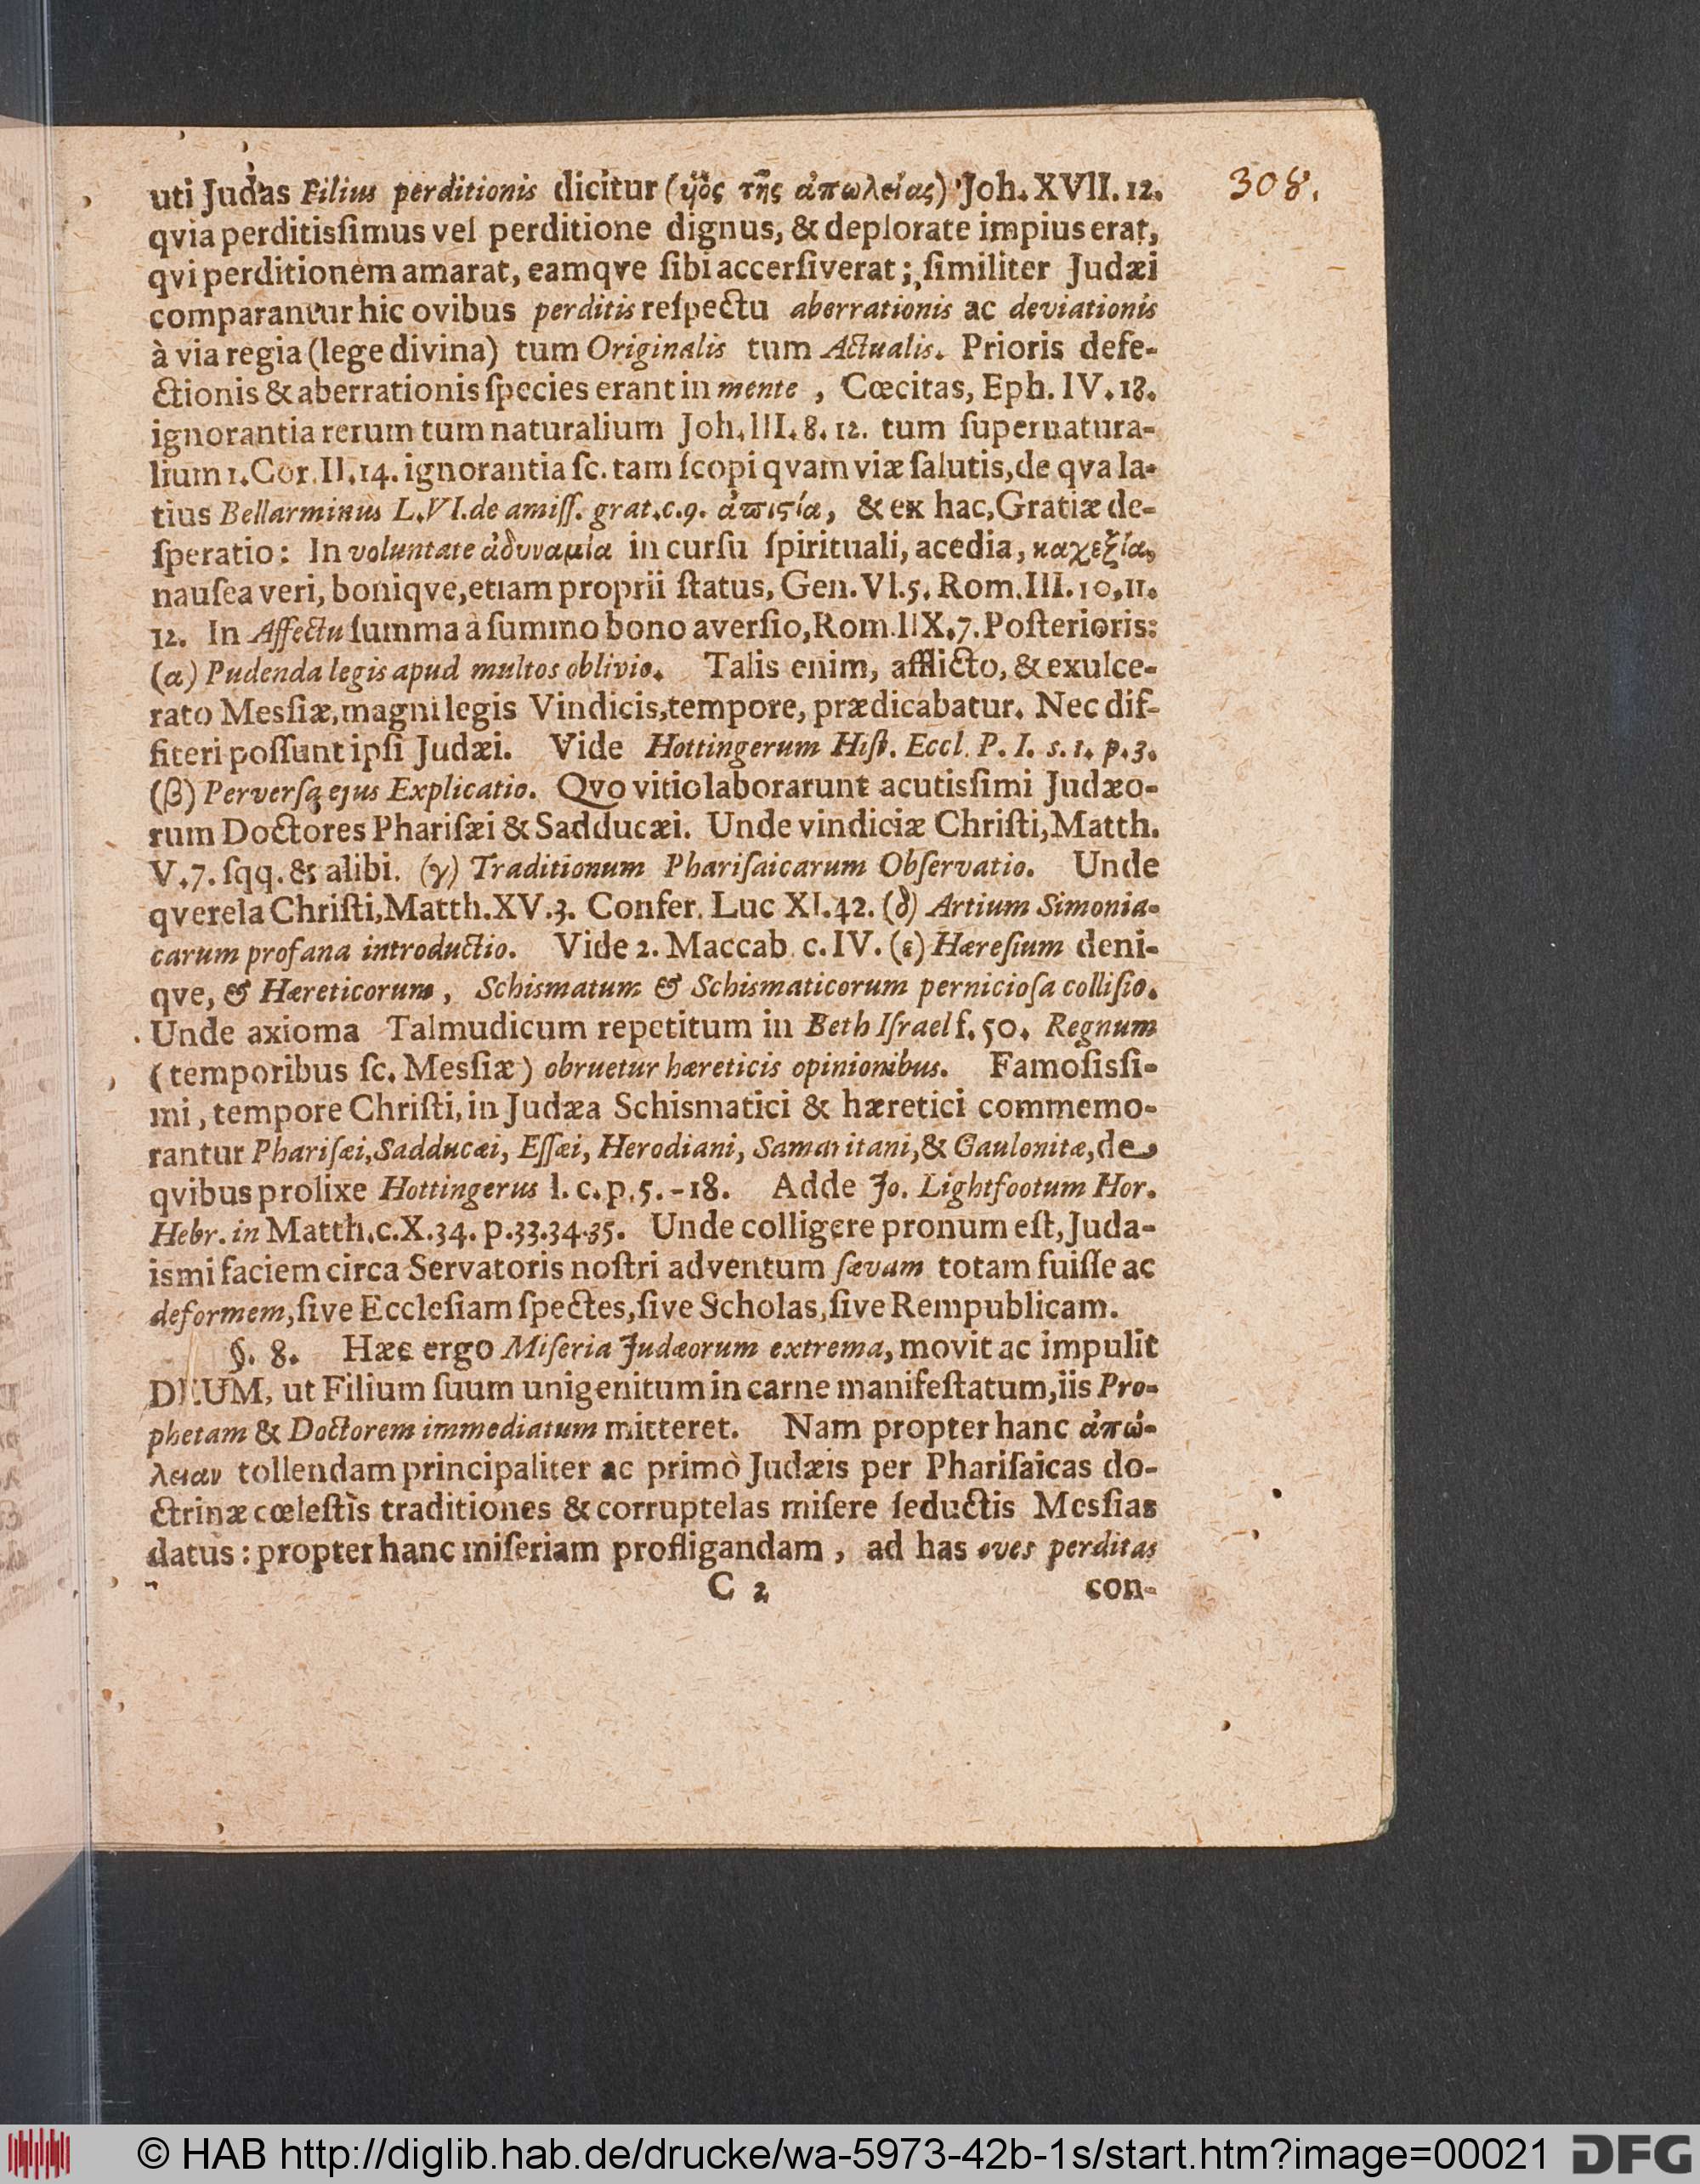 308.
uti Judas Filius perditionis dicitur (ὑιὸς τῆς ἀπωλείας) Joh. XVII. 12.
qvia perditiſſimus vel perditione dignus, & deplorate impius erat,
qvi perditionem amarat, eamqve ſibi accerſiverat; ſimiliter Judæi
comparantur hic ovibus perditis reſpectu aberrationis ac deviationis
à via regia (lege divina) tum Originalis tum Actualis. Prioris defe-
ctionis & aberrationis ſpecies erant in mente, Cœcitas, Eph. IV. 18.
ignorantia rerum tum naturalium Joh. III. 8. 12. tum ſupernatura-
lium 1. Cor. II. 14. ignorantia ſc. tam ſcopi qvam viæ ſalutis, de qva la-
tius Bellarminus L. VI. de amiſſ. grat. c. 9. ἀπιςία, & ex hac, Gratiæ de-
ſperatio: In voluntate ἀδυναμία in curſu ſpirituali, acedia, καχεξία,
nauſea veri, boniqve, etiam proprii ſtatus, Gen. VI. 5. Rom. III. 10. 11.
12. In Affectu ſumma à ſummo bono averſio, Rom. IIX. 7. Poſterioris:
(α) Pudenda legis apud multos oblivio. Talis enim, afflicto, & exulce-
rato Mesſiæ, magni legis Vindicis, tempore, prædicabatur. Nec dif-
fiteri poſſunt ipſi Judæi. Vide Hottingerum Hiſt. Eccl. P. I. s. 1. p. 3.
(β) Perverſa ejus Explicatio. Qvo vitio laborarunt acutisſimi Judæo-
rum Doctores Phariſæi & Sadducæi. Unde vindiciæ Chriſti, Matth.
V. 7. ſqq. & alibi. (γ) Traditionum Phariſaicarum Obſervatio. Unde
qverela Chriſti, Matth. XV. 3. Confer. Luc XI. 42. (δ) Artium Simonia-
carum profana introductio. Vide 2. Maccab. c. IV. (ε) Hæreſium deni-
qve, & Hæreticorum, Schismatum & Schismaticorum pernicioſa colliſio.
Unde axioma Talmudicum repetitum in Beth Iſrael f. 50. Regnum
(temporibus ſc. Mesſiæ) obruetur hæreticis opinionibus. Famoſisſi-
mi, tempore Chriſti, in Judæa Schismatici & hæretici commemo-
rantur Phariſæi, Sadducæi, Eſſæi, Herodiani, Samaritani, & Gaulonitæ, de
qvibus prolixe Hottingerus l. c. p. 5. -18. Adde Jo. Lightfootum Hor.
Hebr. in Matth. c. X. 34. p. 33. 34. 35. Unde colligere pronum eſt, Juda-
ismi faciem circa Servatoris noſtri adventum ſævam totam fuiſſe ac
deformem, ſive Eccleſiam ſpectes, ſive Scholas, ſive Rempublicam.
§. 8. Hæc ergo Miſeria Judæorum extrema, movit ac impulit
DEUM, ut Filium ſuum unigenitum in carne manifeſtatum, iis Pro-
phetam & Doctorem immediatum mitteret. Nam propter hanc ἀπώ-
λειαν tollendam principaliter ac primò Judæis per Phariſaicas do-
ctrinæ cœleſtis traditiones & corruptelas miſere ſeductis Mesſias
datus: propter hanc miſeriam profligandam, ad has oves perditas
C 2 con-
© HAB http://diglib.hab.de/drucke/wa-5973-42b-1s/start.htm?image=00021 DFG